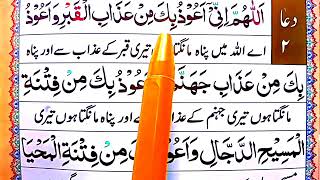 دعا
۲
اَللّٰهُمَّ اِنِّیْۤ اَعُوْذُ بِكَ مِنْ عَذَابِ الْقَبْرِ وَ اَعُوْذُ
اے اللہ میں پناہ مانگتا تیری قبر کے عذاب سے اور پناہ
بِكَ مِنْ عَذَابِ جَهَنَّمَ وَ اَعُوْذُ بِكَ مِنْ فِتْنَةِ
مانگتا ہوں تیری جہنم کے عذاب سے اور پناہ مانگتا ہوں تیری
الْمَسِيْحِ الدَّجَّالِ وَ اَعُوْذُ بِكَ مِنْ فِتْنَةِ الْمَحْيَا